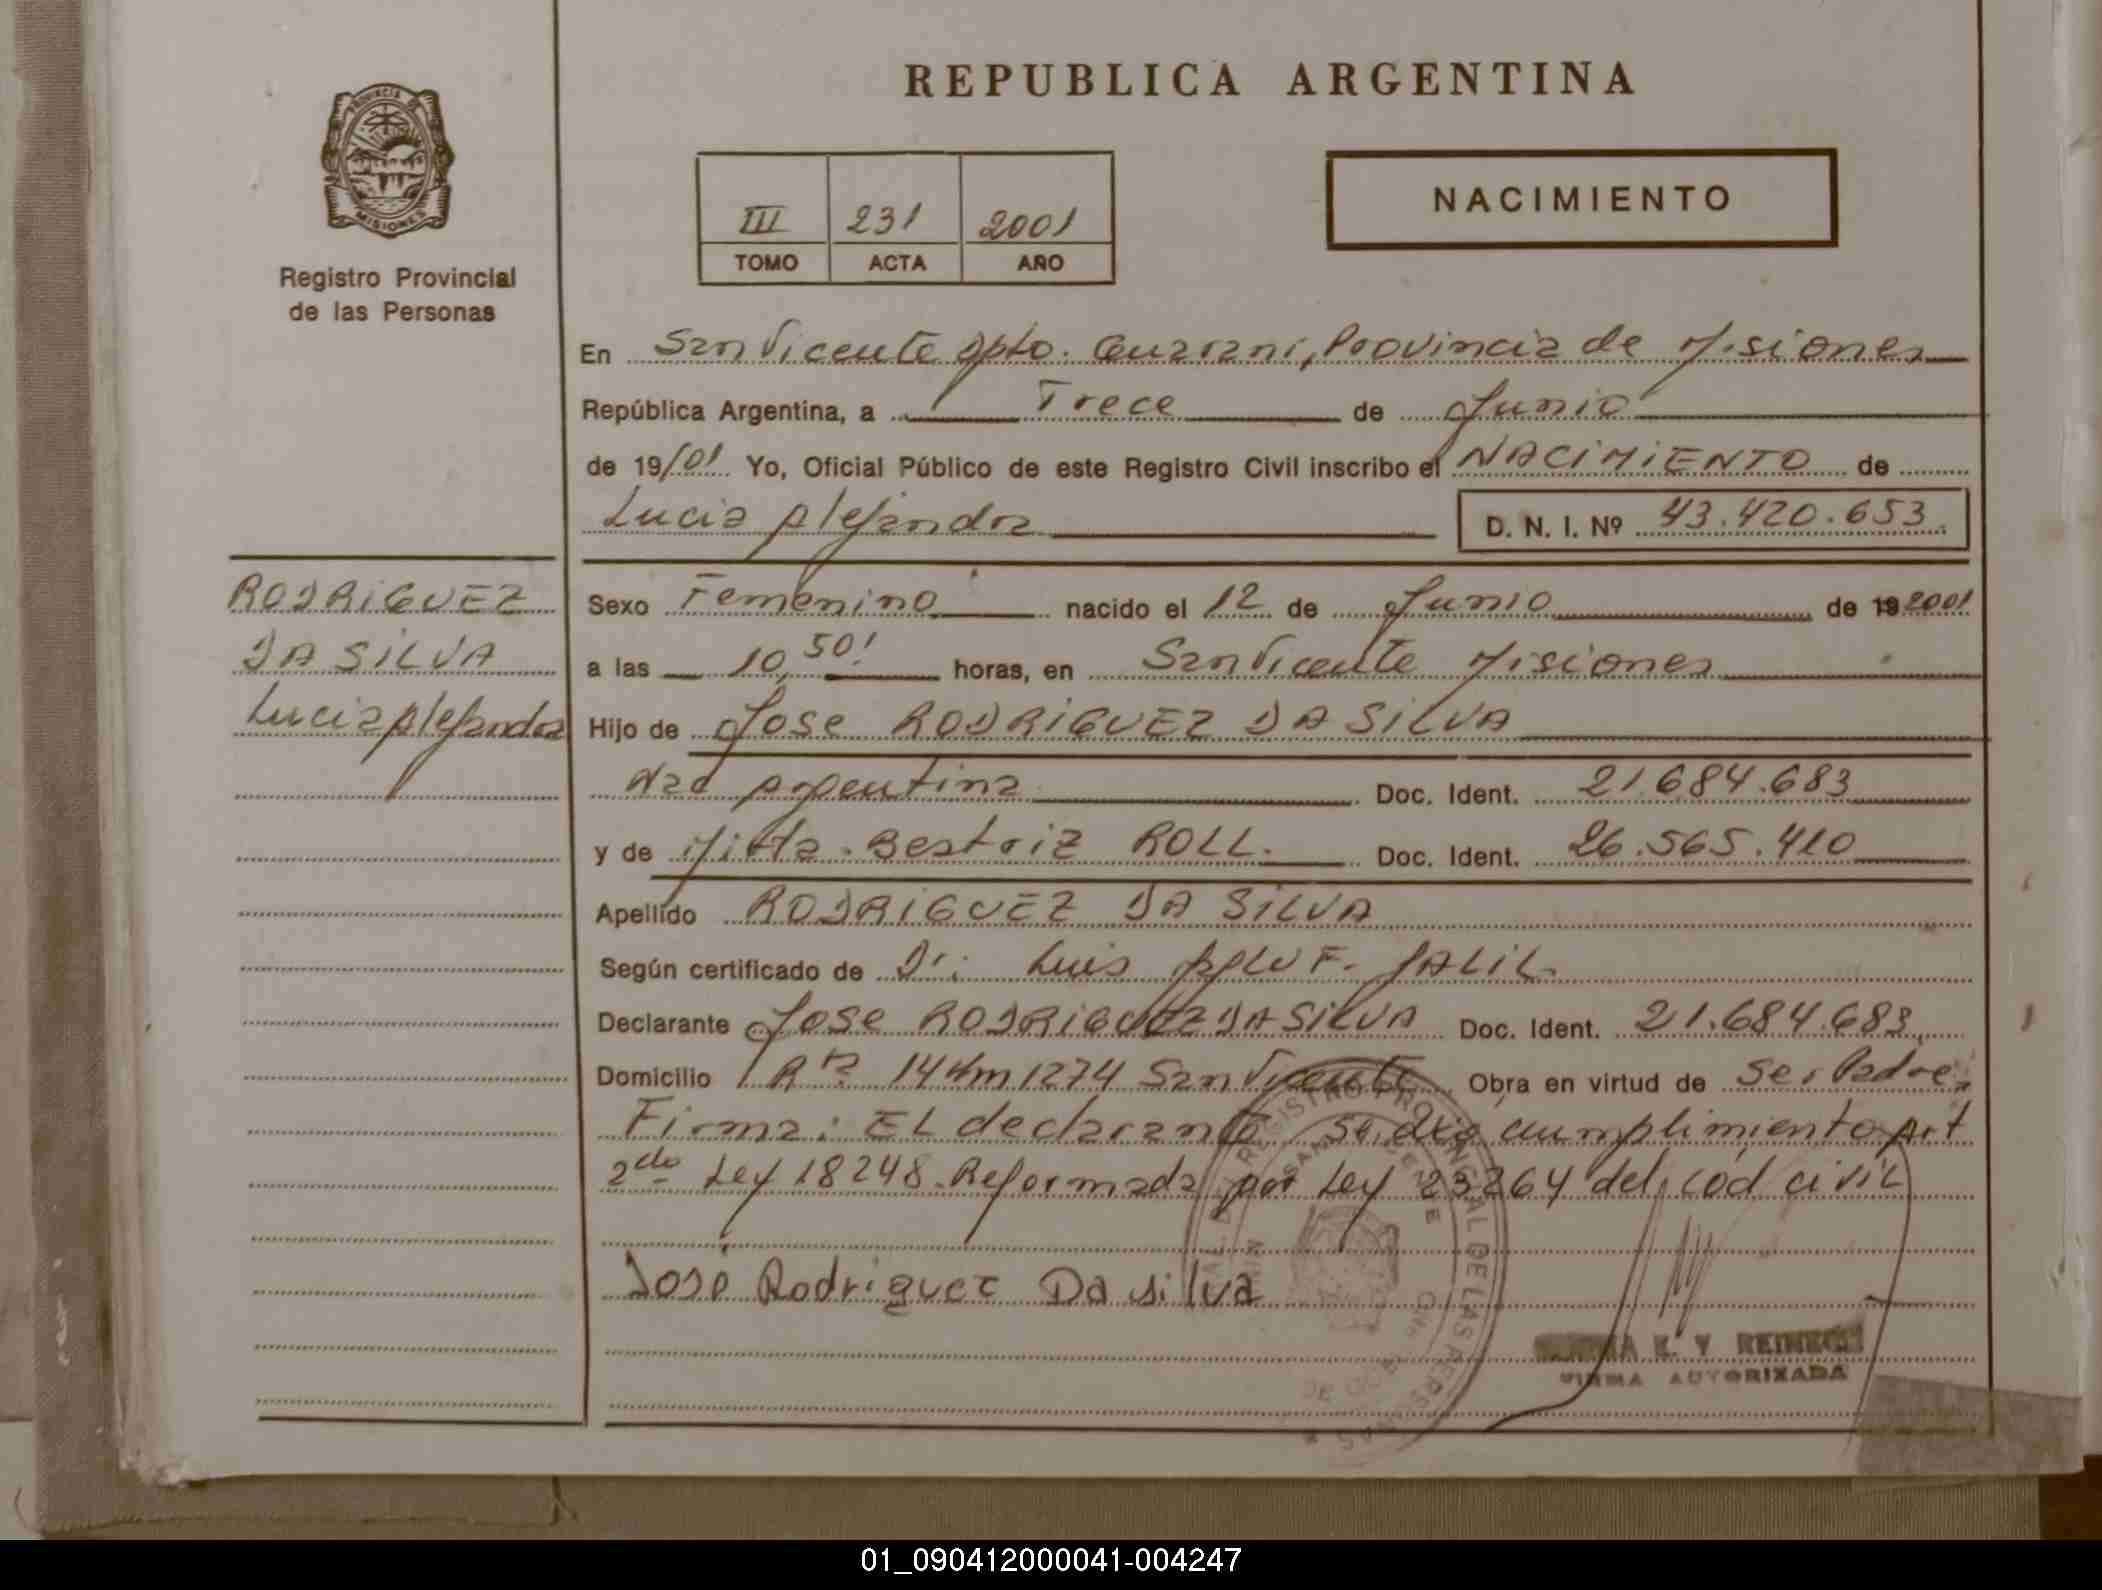 REPUBLICA ARGENTINA
PROVINCIA DE
MISIONES
Registro Provincial
de las Personas
III 231 2001
TOMO ACTA AÑO
NACIMIENTO
En San Vicente Dpto. Guarani, Provincia de Misiones
República Argentina, a Trece de Junio
de 19/01 Yo, Oficial Público de este Registro Civil inscribo el NACIMIENTO de
Lucia Alejandra D. N. I. Nº 43.420.653
RODRIGUEZ
DA SILVA
Lucia Alejandra
Sexo Femenino nacido el 12 de Junio de 19 2001
a las 10,50' horas, en San Vicente Misiones
Hijo de Jose RODRIGUEZ DA SILVA
Nac Argentina Doc. Ident. 21.684.683
y de Mirta Beatriz ROLL. Doc. Ident. 26.565.410
Apellido RODRIGUEZ DA SILVA
Según certificado de Dr. Luis F. JALIL.
Declarante Jose RODRIGUEZ DA SILVA Doc. Ident. 21.684.683
Domicilio Rta 14 km 1274 San Vicente Obra en virtud de ser Padre
Firma: El declarante se dio cumplimiento Art
2do Ley 18248. Reformada por Ley 23264 del cod civil
José Rodriguez Da silva
E. V REINECK
FIRMA AUTORIZADA
REGISTRO PROVINCIAL DE LAS PERSONAS
SAN VICENTE
01_090412000041-004247